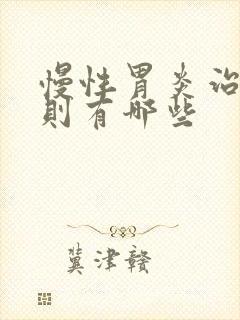 慢性胃炎治
则有哪些
冀津赣